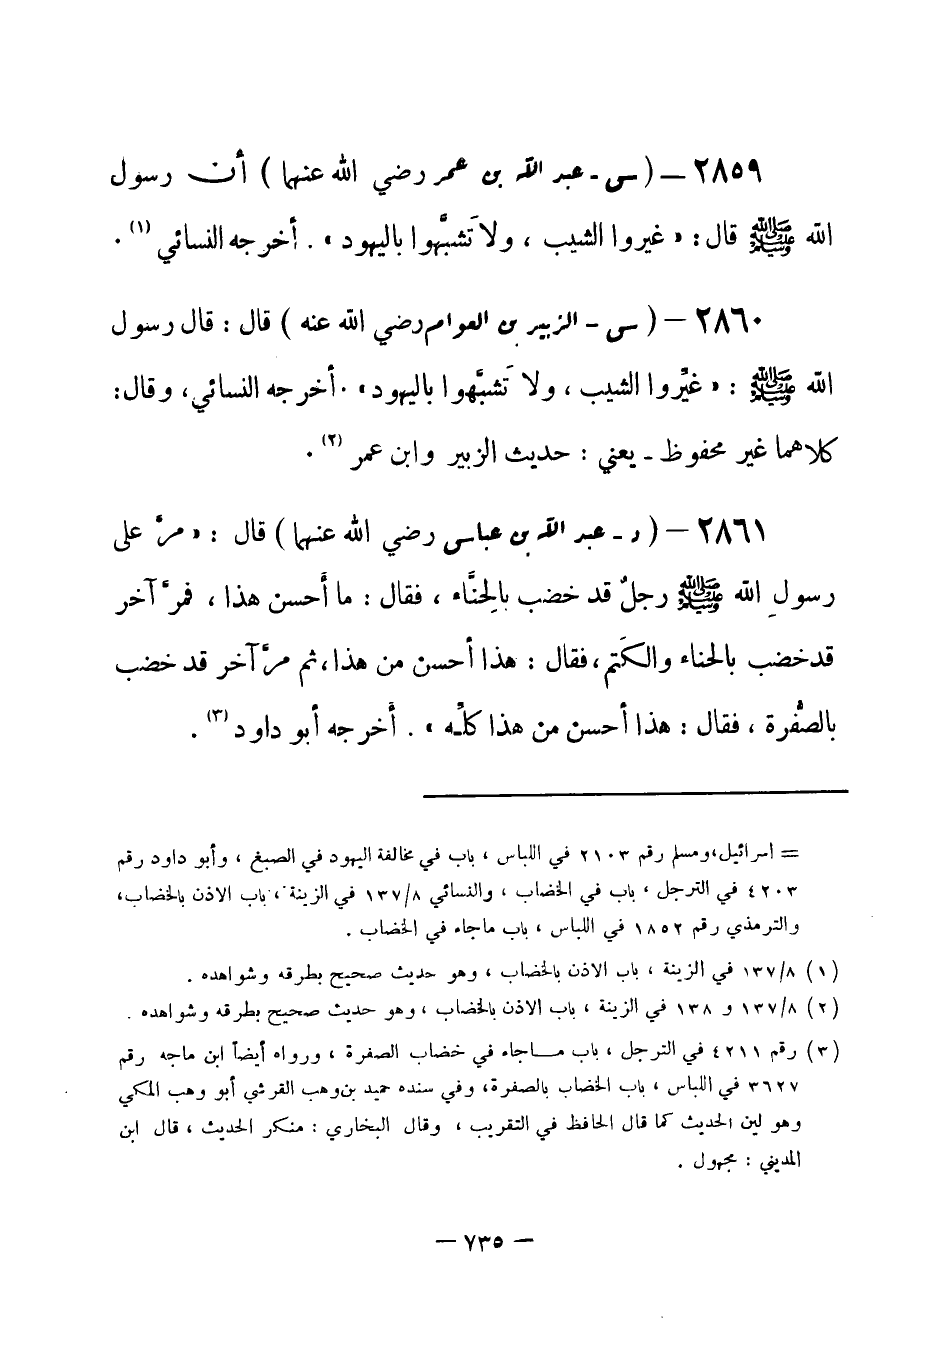 ٢٨٥٩ – ( س - عبد الله بن عمر رضي الله عنهما ) أن رسول
الله ﷺ قال : « غيروا الشيب ، ولا تَشبَّهوا باليهود » . أخرجه النسائي (١) .
٢٨٦٠ – ( س - الزبير بن العوام رضي الله عنه ) قال : قال رسول
الله ﷺ : « غيِّروا الشيب ، ولا تَشبَّهوا باليهود » . أخرجه النسائي ، وقال :
كلاهما غير محفوظ - يعني : حديث الزبير وابن عمر (٢) .
٢٨٦١ – ( د - عبد الله بن عباس رضي الله عنهما ) قال : « مرَّ على
رسولِ الله ﷺ رجلٌ قد خضب بالحِنَّاء ، فقال : ما أَحسن هذا ، فمرَّ آخر
قد خضب بالحناء والكَتم ، فقال : هذا أحسن من هذا ، ثم مرَّ آخر قد خضب
بالصُّفرة ، فقال : هذا أحسن من هذا كلِّه » . أَخرجه أبو داود (٣) .
= اسرائيل ، ومسلم رقم ٢١٠٣ في اللباس ، باب في مخالفة اليهود في الصبغ ، وأبو داود رقم
٤٢٠٣ في الترجل ، باب في الخضاب ، والنسائي ١٣٧/٨ في الزينة ، باب الاذن بالخضاب ،
والترمذي رقم ١٨٥٢ في اللباس ، باب ماجاء في الخضاب .
(١) ١٣٧/٨ في الزينة ، باب الاذن بالخضاب ، وهو حديث صحيح بطرقه وشواهده .
(٢) ١٣٧/٨ و ١٣٨ في الزينة ، باب الاذن بالخضاب ، وهو حديث صحيح بطرقه وشواهده .
(٣) رقم ٤٢١١ في الترجل ، باب مـاجاء في خضاب الصفرة ، ورواه أيضاً ابن ماجه رقم
٣٦٢٧ في اللباس ، باب الخضاب بالصفرة ، وفي سنده حميد بن وهب القرشي أبو وهب المكي
وهو لين الحديث كما قال الحافظ في التقريب ، وقال البخاري : منكر الحديث ، قال ابن
المديني : مجهول .
– ٧٣٥ –